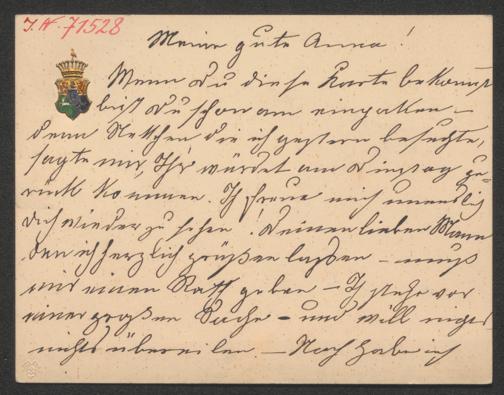 I.N. 71528
Meine gute Anna!
Wenn du diese Karte bekommst
bist du schon am einpacken –
denn Nettchen die ich gestern besuchte,
sagte mir, Ihr würdet am Dienstag zu=
rück kommen. Ich freue mich unendlich
dich wieder zu sehen! Deinen lieben Mann
den ich herzlich grüßen laßen – muß
mir einen Rath geben – Ich stehe vor
einer großen Sache – und will
nichts übereilen – Noch habe ich